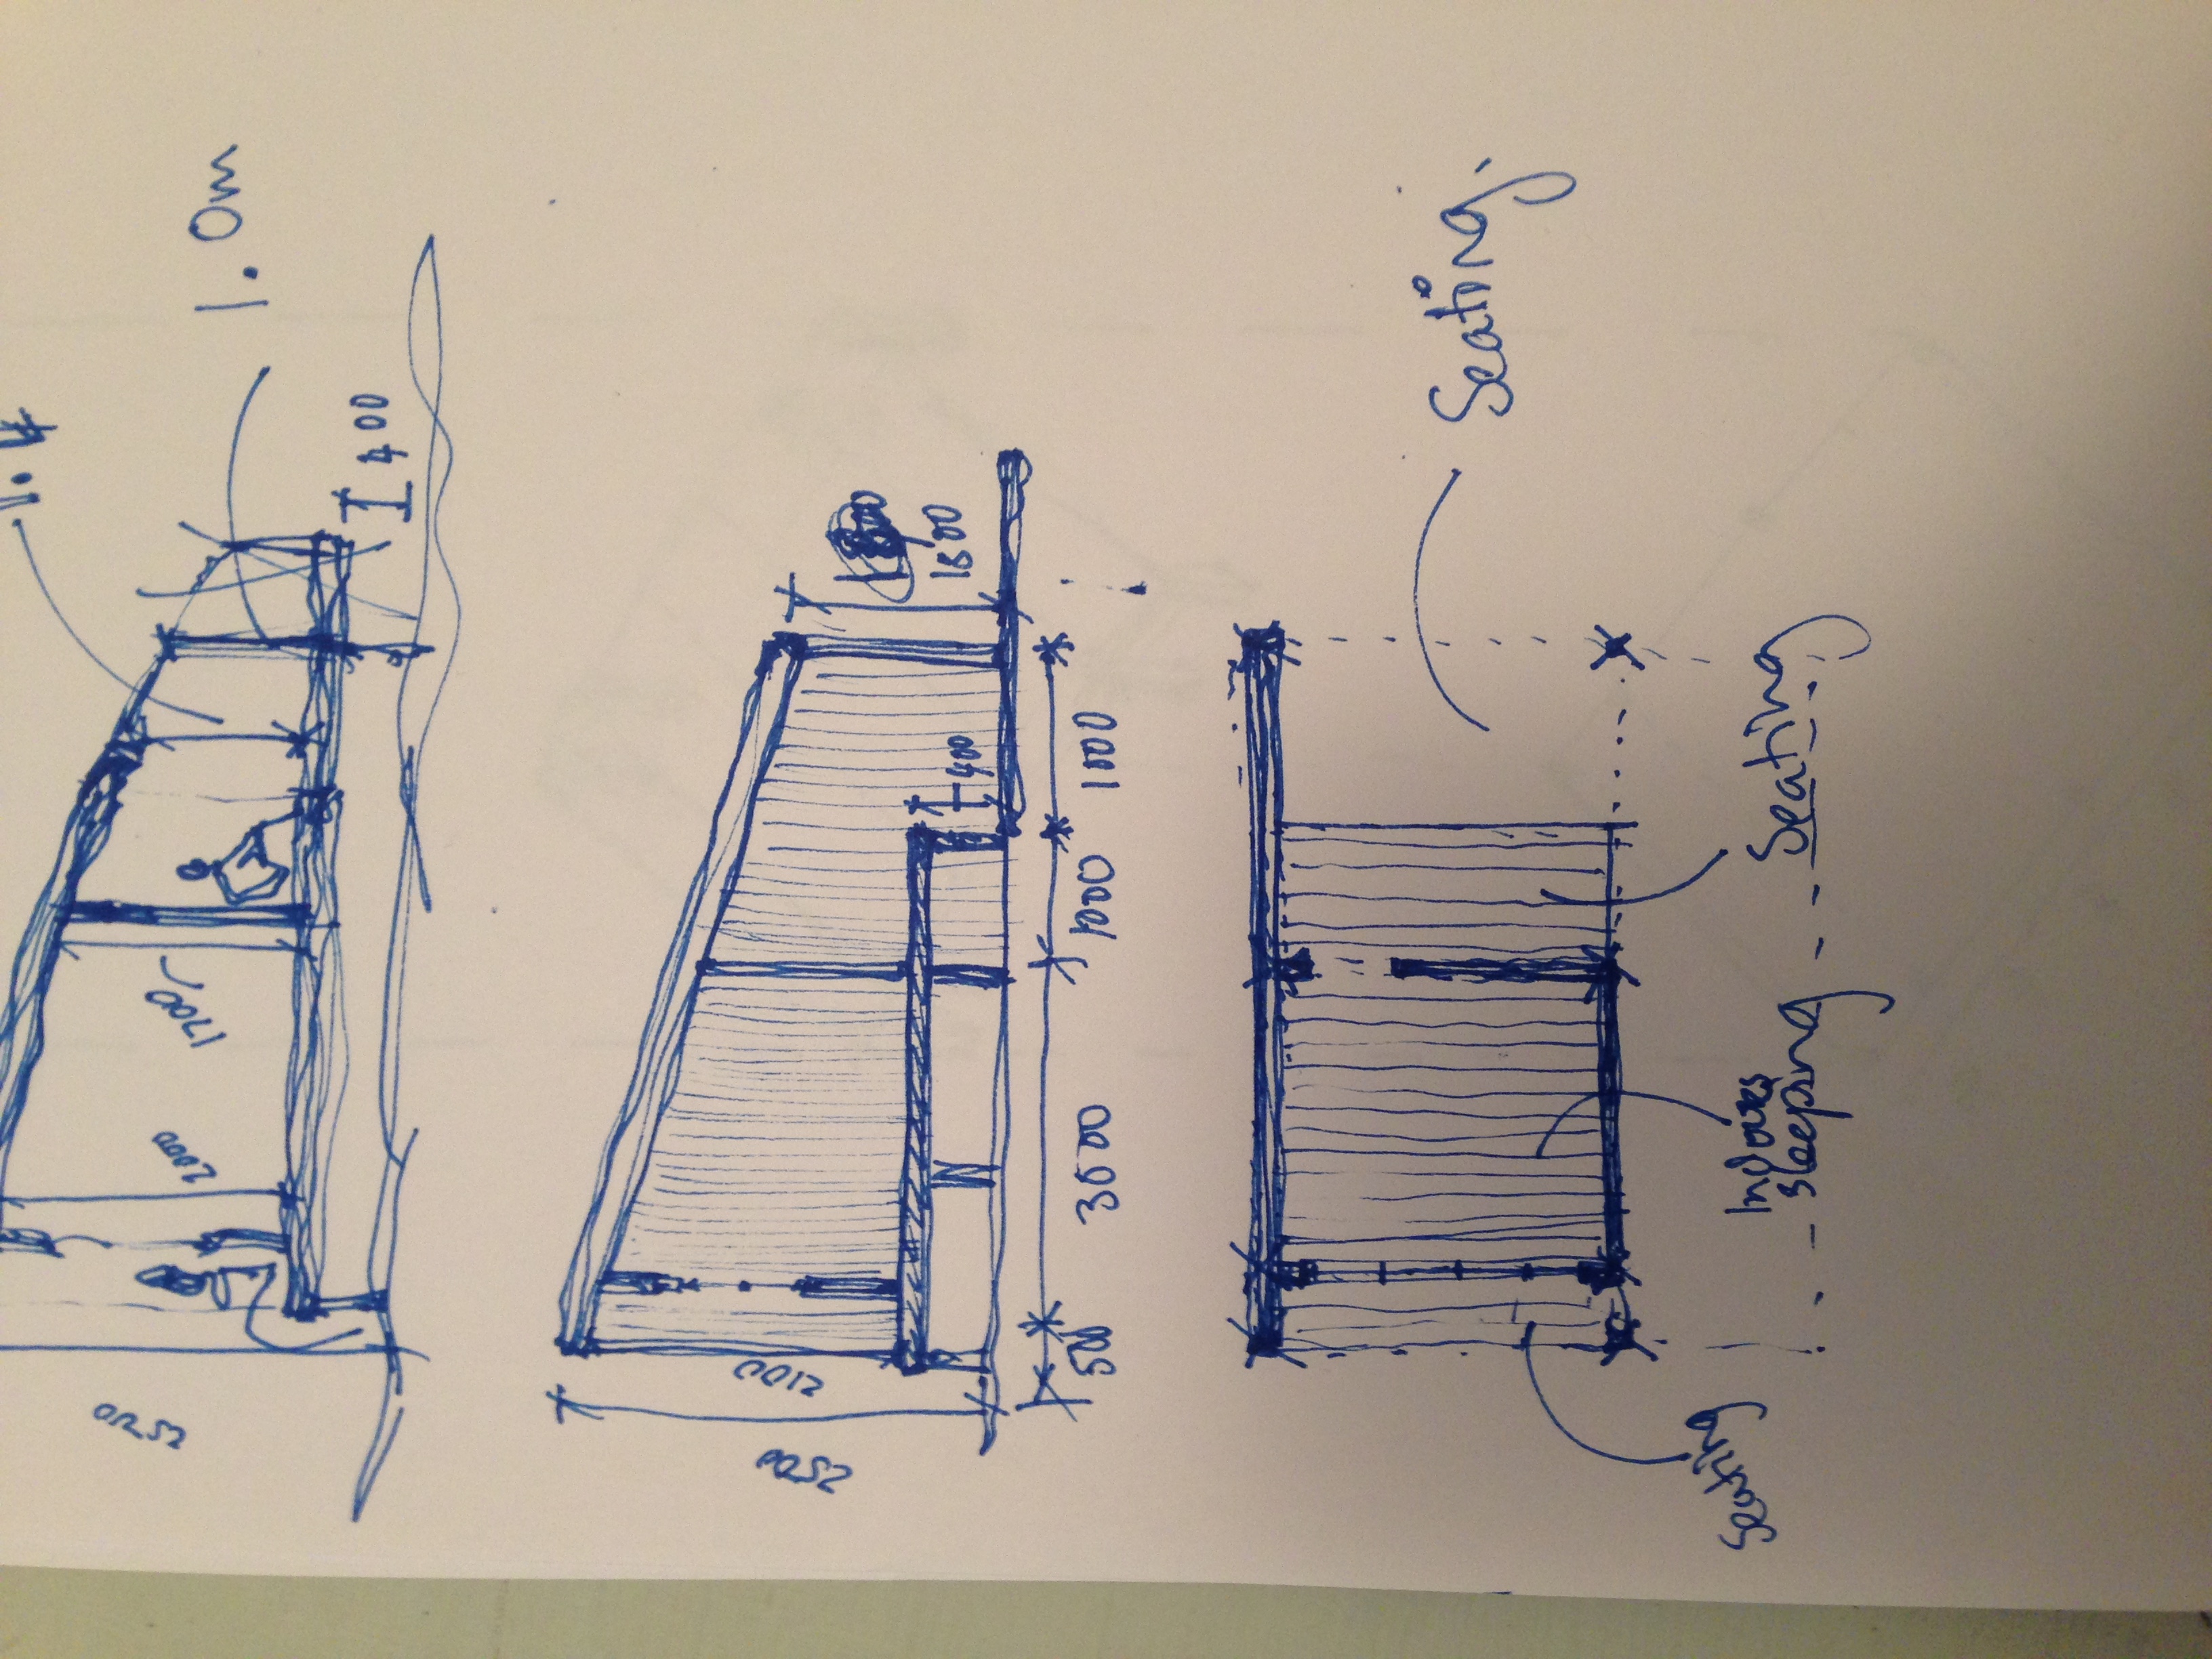 1.4
2500
2000
1700
1.0m
400
2500
2100
400
1500
500
3000
1000
1000
Seating.
Seating
Indoors
sleeping
Seating